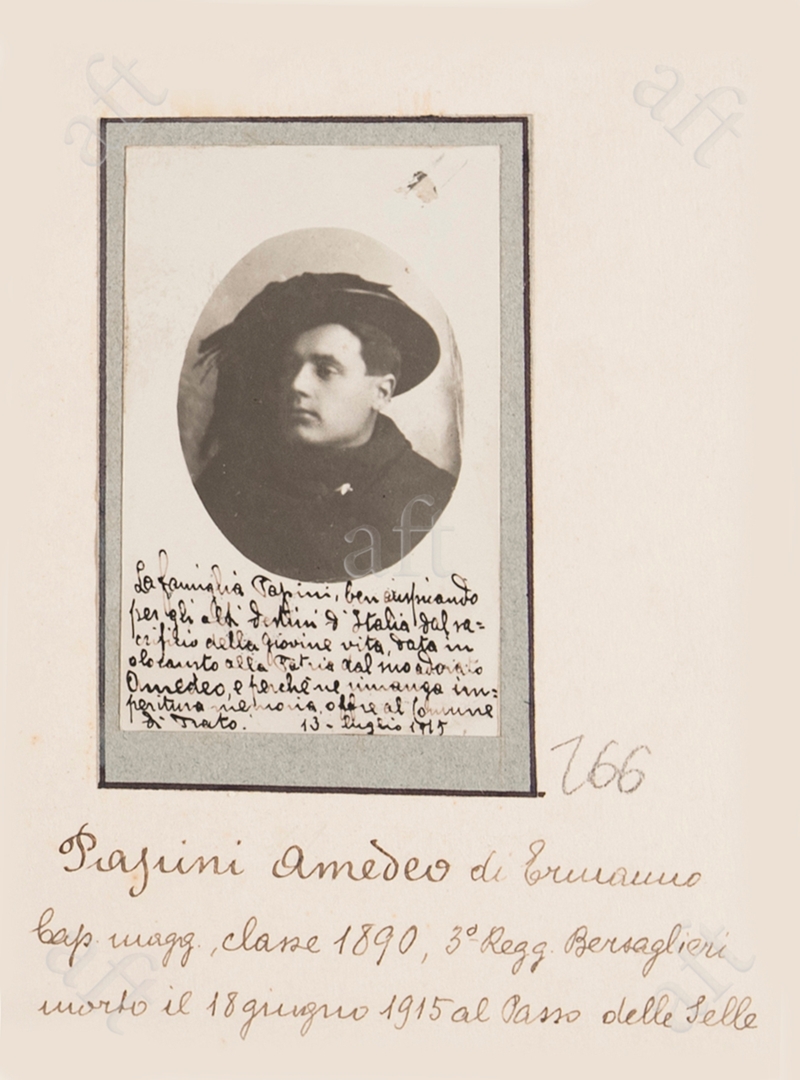 aft
aft
aft
La famiglia Papini, bene auspicando
per gli alti destini d'Italia dal sa=
crifizio della giovine vita, data in
olocausto alla Patria dal suo adorato
Omedeo, e perchè ne rimanga im=
peritura memoria, offre al Comune
di Prato. 13 - luglio 1915
766
Papini Amedeo di Ermanno
Cap. magg., classe 1890, 3° Regg. Bersaglieri
morto il 18 giugno 1915 al Passo delle Selle
aft
aft